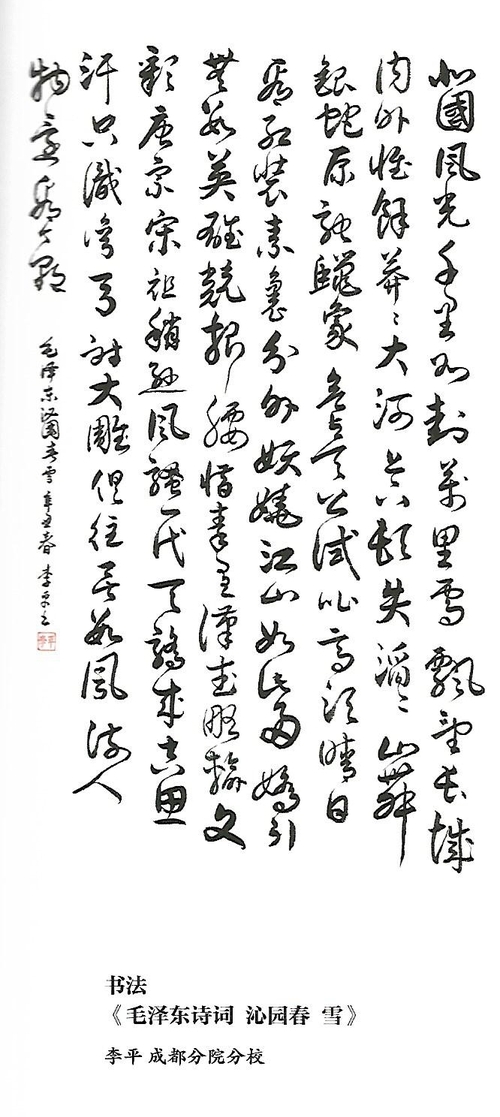 北國風光千里冰封萬里雪飄望長城
内外惟餘莽々大河上下頓失滔々山舞
銀蛇原馳蠟象欲與天公試比高須晴日
看紅裝素裹分外妖嬈江山如此多嬌引
無數英雄競折腰惜秦皇漢武略輸文
彩唐宗宋祖稍遜風騷一代天驕成吉思
汗只識彎弓射大雕俱往矣數風流人
物還看今朝
毛澤東沁園春雪辛丑春李平書
书法
《毛泽东诗词 沁园春 雪》
李平 成都分院分校